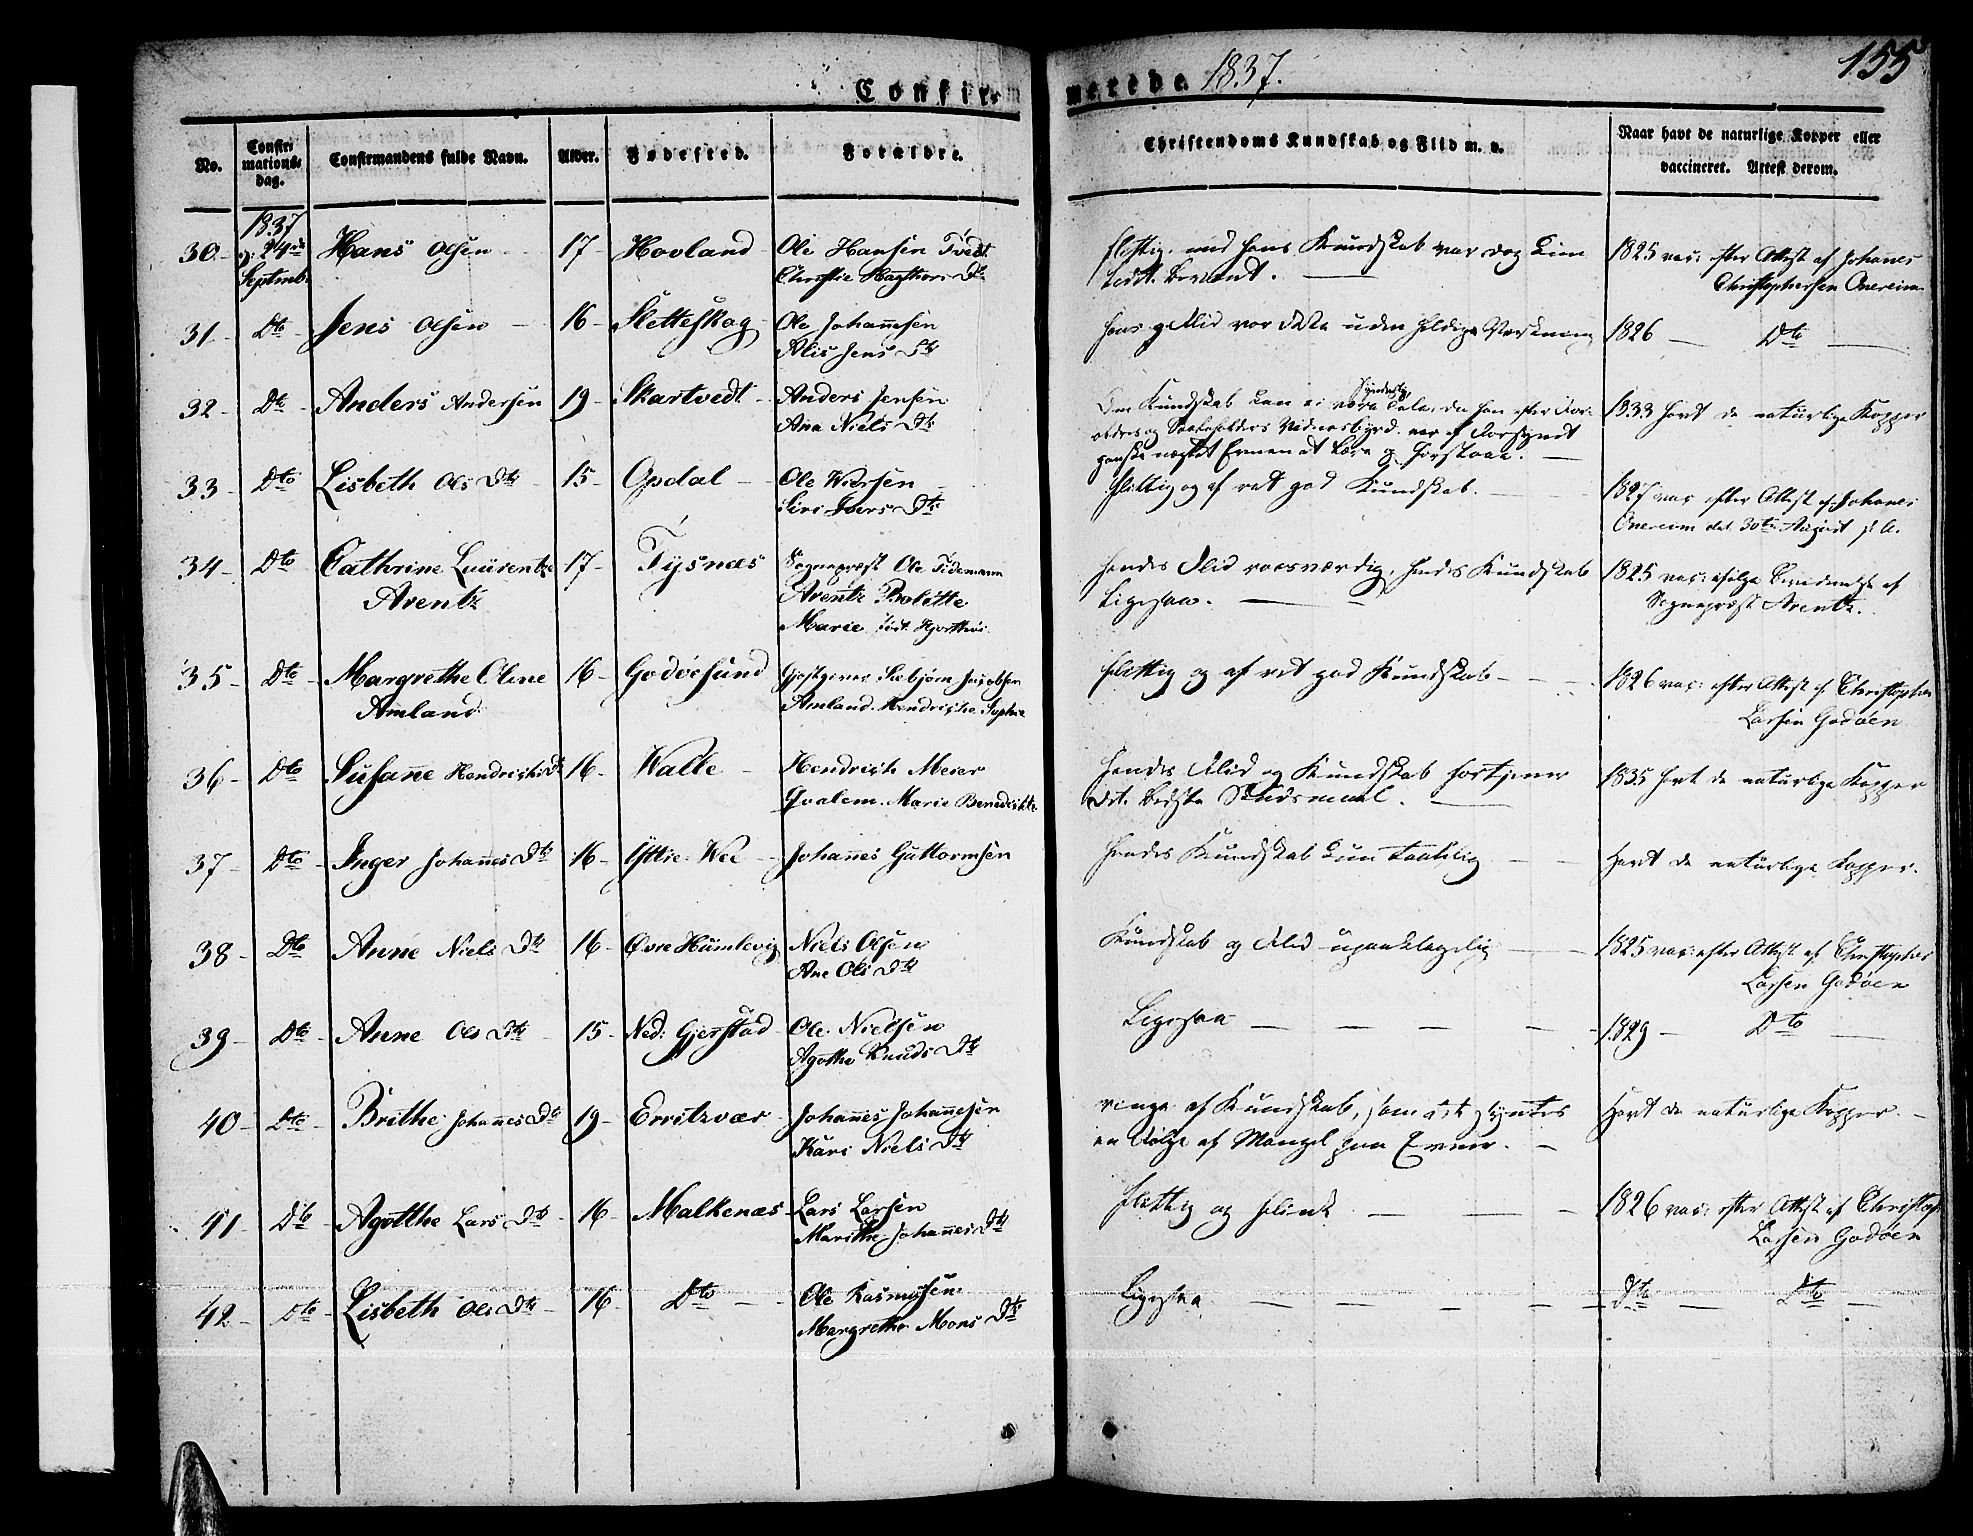 Confirmerede 1837.
155
No.
Confirmationsdag.
Confirmandens fulde Navn.
Alder.
Fødested.
Forældre.
Christendoms Kundskab og Flid m. v.
Naar havt de naturlige Kopper eller vaccineret. Attest derom.
1837
30 - d: 24de Septmb. Hans Olsen - 17 - Hovland - Ole Hansen Tvedt
Christie Dtr
flittig, med hans Kundskab var dog kun
1825 vac: efter Attest af Johanes
Christophersen Onereim
31 - Dto - Jens Olsen - 16 - Sletteskog - Ole Johannesen
Alis Jens Dtr
hans Flid var uden heldig Virkning
1826 — Dto —
32 - Dto - Anders Andersen 19 - Skartvedt - Anders Jensen
Ana Niels Dtr
Om Kundskab kan ei være Tale, da han efter For-
ældres og Vidnesbyrd var af Forsynet
ganske nægtet Evnen at lære og forstaae. —
1833 havt de naturlige Kopper
33 - Dto - Lisbeth Ols Dtr - 15 - Opdal - Ole Wiersen
Siri Ivers Dtr
flittig og af ret god Kundskab. —
1827 vac efter Attest af Johanes
Onereim dat. 30te August d. A.
34 - Dto Cathrine Laurentze 17 - Tysnæs Sognepræst Ole Tidemann
Arentz
Arentz Bolitte
Marie født Hjorthøi
hendes Flid roesværdig, hendes Kundskab
ligesaa. —
1825 vac: ifølge af
Sognepræst Arentz.
35 - Dto - Margrethe Oline 16 - Godöesund Gjestgiver Jacobsen
Amland
Amland. Hendricke Sophie
flittig og af ret god Kundskab - -
1826 vac: efter Attest af Christopher
Larsen Godöen
36 - Dto - Susanne Hendrichs Dr 16 - Walle - Hendrich Meier
Qvalem. Marie Benedickte
hendes Flid og Kundskab fortjener
det bedste Skudsmaal. —
1835 havt de naturlige Kopper
37 - Dto - Inger Johannes Dtr 16 - Yttre Wee - Johannes Guttormsen
hendes Kundskab kun taalelig — —
Havt de naturlige Kopper.
38 - Dto - Anne Niels Dtr 16 - Øvre Humlevig Niels Olsen
Ane Ols Dtr
Kundskab og Flid upaaklagelig —
1825 vac: efter Attest af Christopher
Larsen Godöen
39 - Dto - Anne Ols Dtr - 15 - Ned: Gjerstad - Ole Nielsen
Agathe Knuds Dtr
Ligesaa — — — — —
1829 - Dto —
40 - Dto - Brithe Johannes Dtr 19 - Erritzvær - Johannes Johannesen
Kari Niels Dtr
ringe af Kundskab, som
en Følge af Mangel paa Evner. —
Havt de naturlige Kopper. -
41 - Dto - Agotthe Lars Dtr - 16 - Malkenæs - Lars Larsen
Marithe Johannes Dtr
flittig og flink — — —
1826 vac: efter Attest af Christop:
Larsen Godöen
42 - Dto - Lisbeth Ols Dtr - 16 - Dto - - Ole Rasmusen
Margrethe Mons Dtr
Ligesaa. — — — — —
Dto — Dto —